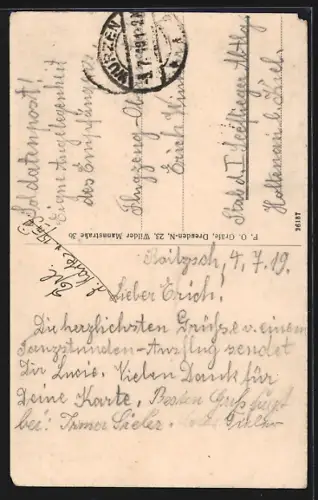 WURZEN
5.7.19
Soldatenpost!
Eigne Angelegenheit
des Empfängers
Flugzeug-Ob.
Erich
Stab d. I Seeflieger Abtlg
Holtenau b. Kiel.
F. O. Gräfe, Dresden-N. 23, Wilder Mannstraße 30
26187
Roitzsch, 4.7.19.
Lieber Erich!
Die herzlichsten Grüße v. einem
Tanzstunden-Ausflug sendet
Dir Lucie. Vielen Dank für
Deine Karte. Besten Gruß fügt
bei: Irma Sieler.